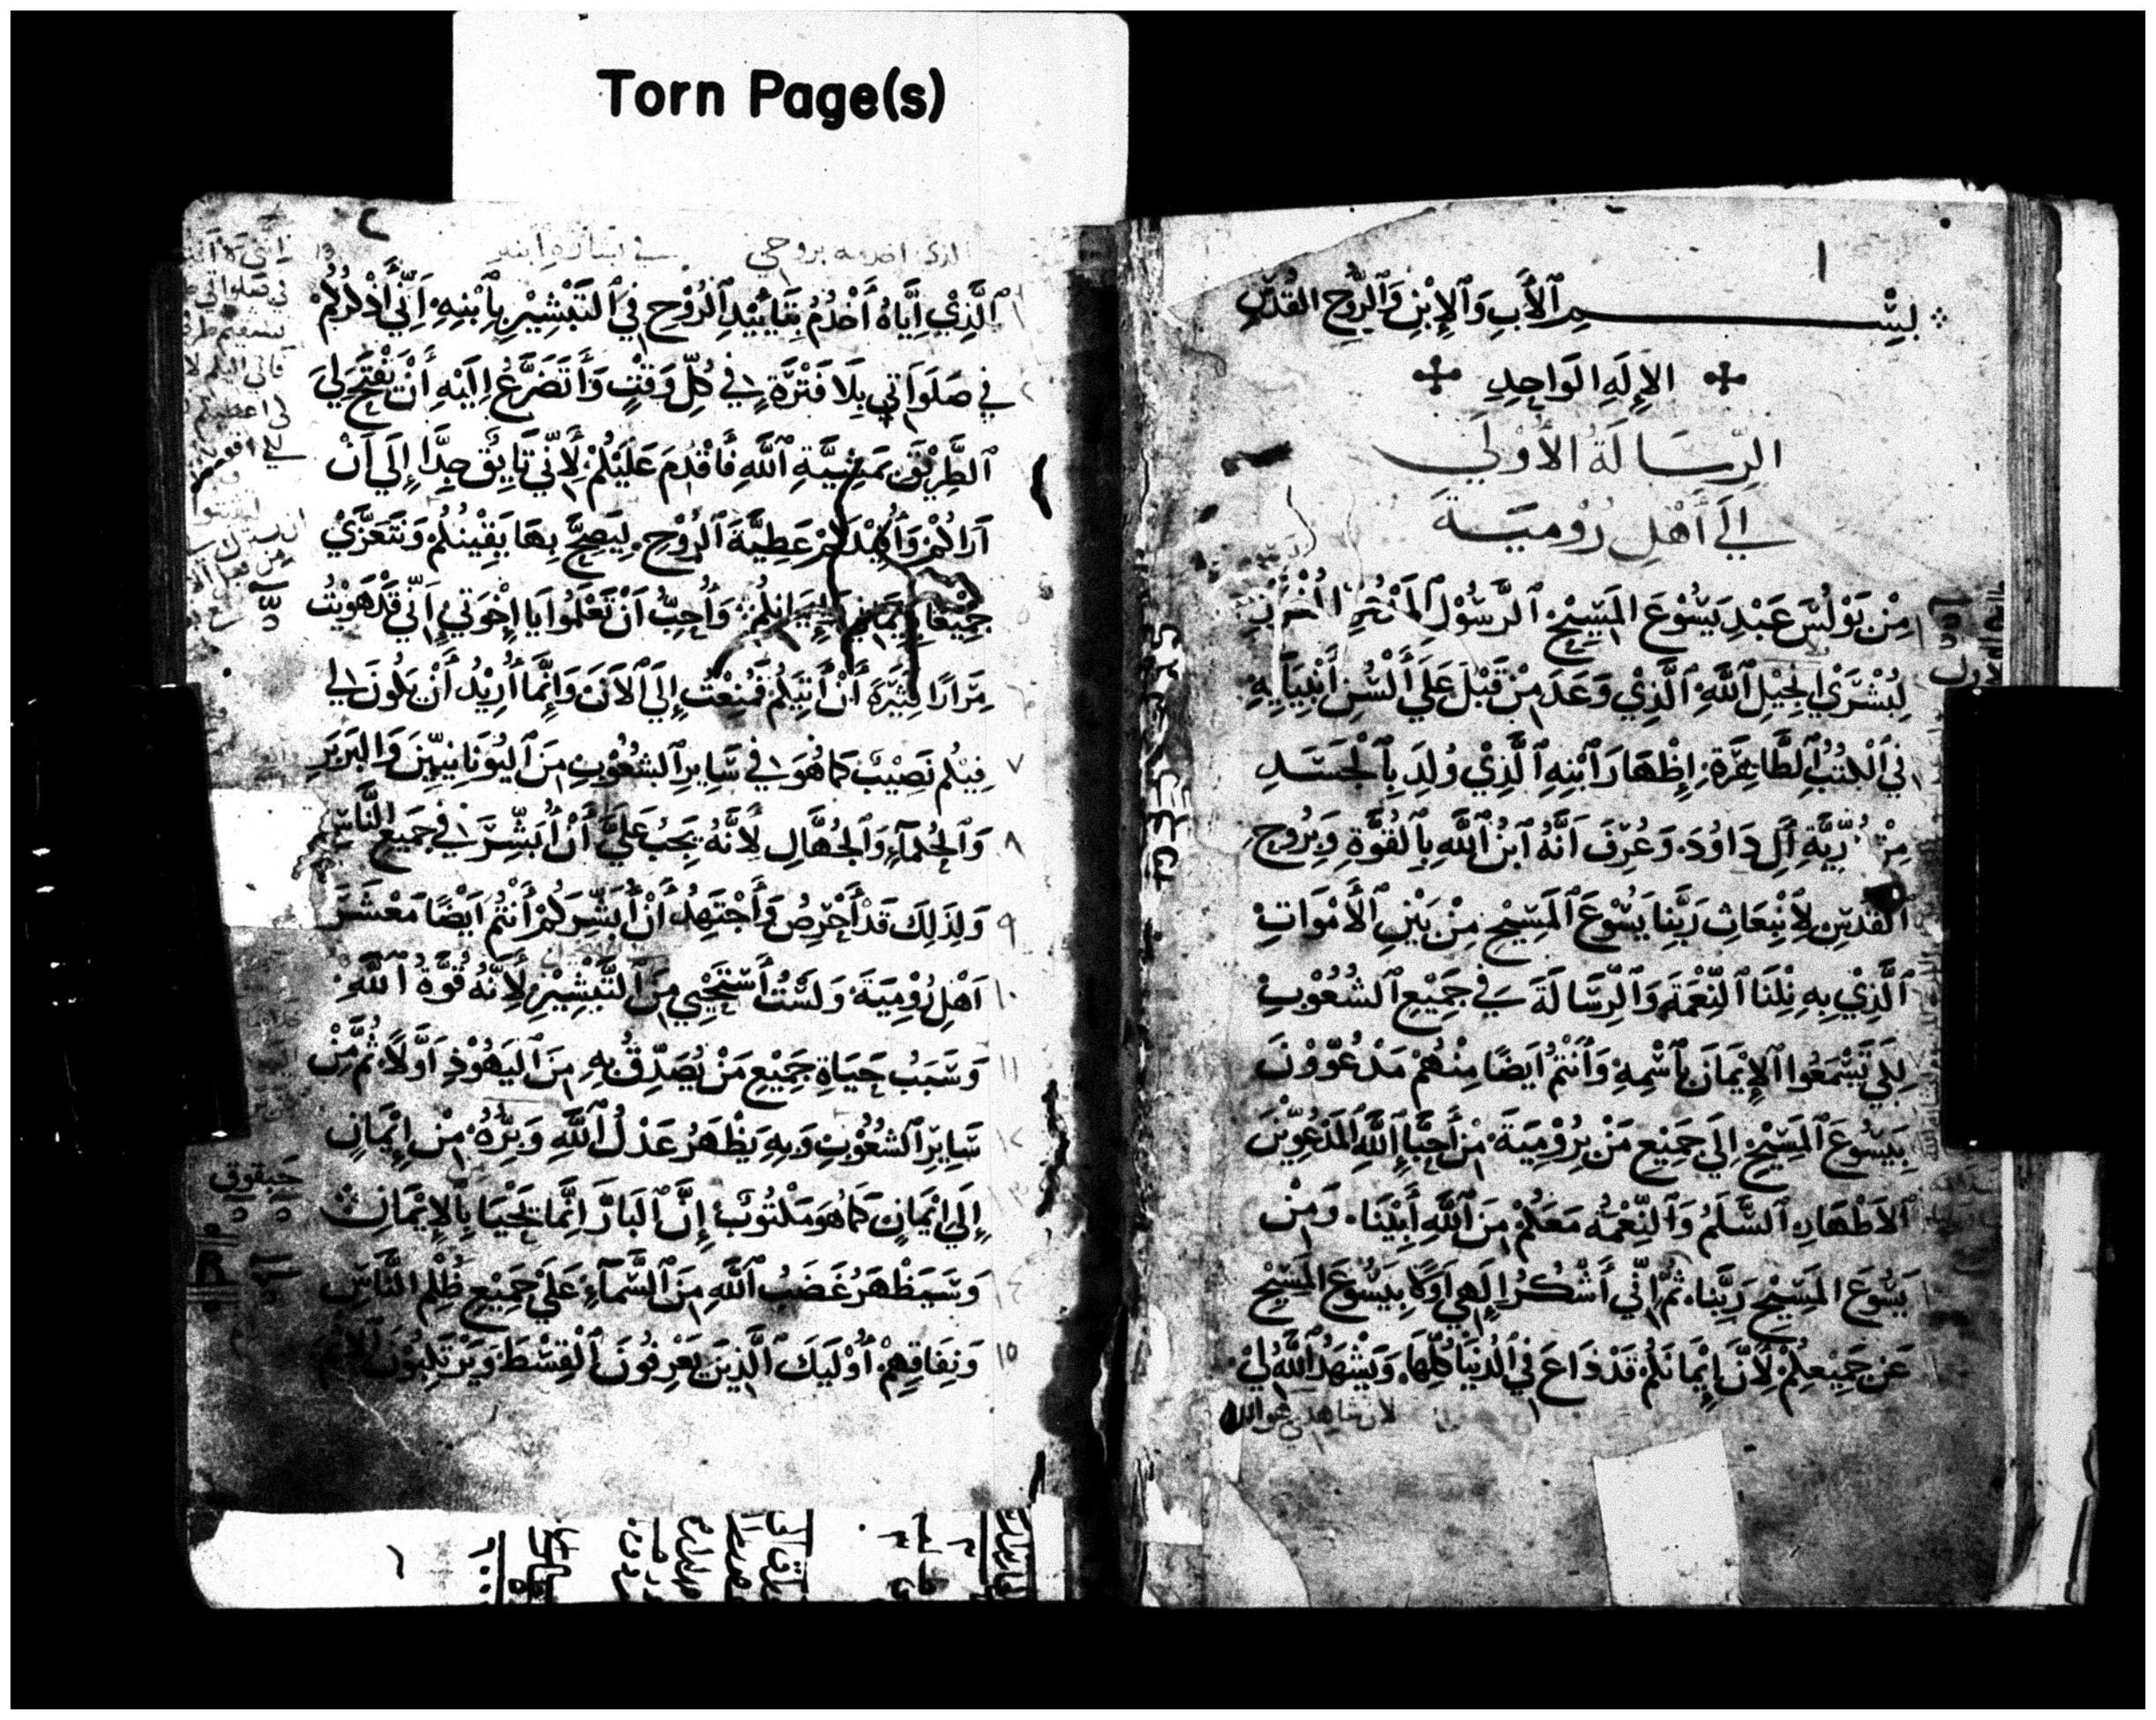 Torn Page(s)
١
بِسْمِ ٱلْأَبِ وَٱلْإِبْنِ وَٱلرُّوحِ القُدُسِ
الإِلَهِ الوَاحِدِ
الرِّسَالَةُ الأُوْلَي
إِلَي أَهْلِ رُوْمِيَةَ
مِنْ بَوْلُسَ عَبْدِ يَسُوْعَ المَسِيْحِ ٱلرَّسُوْلِ
لِبُشْرَي إِنْجِيْلِ ٱللَّهِ ٱلَّذِي وَعَدَ مِنْ قَبْلُ عَلَي أَلْسُنِ أَنْبِيَآيِهِ
فِي ٱلْكُتُبِ ٱلطَّاهِرَةِ إِظْهَارَ ٱبْنِهِ ٱلَّذِيْ وُلِدَ بِٱلْجَسَدِ
مِنْ ذُرِّيَّةِ آلِ دَاوُدَ وَعُرِفَ اَنَّهُ ٱبْنُ ٱللَّهِ بِٱلْقُوَّةِ وَبِرُوحِ
ٱلْقُدْسِ لِٱنْبِعَاثِ رَبِّنَا يَسُوْعَ ٱلْمَسِيْحِ مِنْ بَيْنِ ٱلْأَمْوَاتِ
ٱلَّذِيْ بِهِ نِلْنَا ٱلنِّعْمَةَ وَٱلرِّسَالَةَ فِي جَمِيْعِ ٱلشُّعُوْبِ
لِكَيْ يَسْمَعُوا ٱلْإِيْمَانَ بِٱسْمِهِ وَأَنْتُمْ اَيْضًا مِنْهُمْ مَدْعُوُّوْنَ
بِيَسُوْعَ ٱلْمَسِيْحِ إِلَي جَمِيْعِ مَنْ بِرُوْمِيَةَ مِنْ أَحِبَّاءِ ٱللَّهِ ٱلْمَدْعُوِّيْنَ
ٱلْأَطْهَارِ ٱلسَّلَمُ وَٱلنِّعْمَةُ مَعَكُمْ مِنَ ٱللَّهِ أَبِيْنَا وَمِنْ
يَسُوْعَ المَسِيْحِ رَبِّنَا ثُمَّ إِنِّي أَشْكُرُ إِلَهِي اَوَّلًا بِيَسُوْعَ المَسِيْحِ
عَنْ جَمِيْعِكُمْ لِأَنَّ إِيْمَانَكُمْ قَدْ ذَاعَ فِي ٱلدُّنْيَا كُلِّهَا وَيَشْهَدُ ٱللَّهُ لِيْ
لان شاهدي هو الله
٢
الذي اخدمه بروحي في بشارة ابنه
ٱلَّذِيْ إِيَّاهُ أَخْدُمُ بِتَايِيْدِ ٱلرُّوْحِ فِي ٱلتَّبْشِيْرِ بِٱبْنِهِ اَنِّي أَذْكُرُكُمْ
فِي صَلَوَاتِي بِلَا فَتْرَةٍ فِي كُلِّ وَقْتٍ وَأَتَضَرَّعُ إِلَيْهِ أَنْ يَفْتَحَ لِيَ
ٱلطَّرِيْقَ بِمَشِيَّةِ ٱللَّهِ فَأَقْدَمَ عَلَيْكُمْ لِأَنِّي تَايِقٌ جِدًّا إِلَي اَنْ
اَرَاكُمْ وَأُفِيْدَكُمْ عَطِيَّةَ ٱلرُّوْحِ لِيَصِحَّ بِهَا يَقِيْنُكُمْ وَنَتَعَزَّيْ
جَمِيْعًا بِإِيْمَانِيْ وَإِيْمَانِكُمْ وَأُحِبُّ اَنْ تَعْلَمُوا يَا إِخْوَتِي اَنِّي قَدْ هَوِيْتُ
مِرَارًا كَثِيْرَةً أَنْ أَتِيَكُمْ فَمُنِعْتُ إِلَي ٱلْآنَ وَإِنَّمَا أُرِيْدُ أَنْ يَكُونَ لِي
٧ فِيْكُمْ نَصِيْبٌ كَمَا هُوَ لِي فِي سَايِرِ ٱلشُّعُوْبِ مِنَ ٱلْيُوْنَانِيِّيْنَ وَالبَرْبَرِ
٨ وَٱلْحُكَمَآءِ وَٱلْجُهَّالِ لِأَنَّهُ يَجِبُ عَلَيَّ أَنْ أُبَشِّرَ فِي جَمِيْعِ النَّاسِ
٩ وَلِذَلِكَ قَدْ أَحْرِصُ وَأَجْتَهِدُ أَنْ أُبَشِّرَكُمْ أَنْتُمْ اَيْضًا مَعْشَرَ
١٠ اَهْلِ رُوْمِيَةَ وَلَسْتُ أَسْتَحْيِي مِنَ ٱلتَّبْشِيْرِ لِأَنَّهُ قُوَّةُ ٱللَّهِ
١١ وَسَبَبُ حَيَاةِ جَمِيْعِ مَنْ يُصَدِّقُ بِهِ مِنَ ٱلْيَهُوْدِ اَوَّلًا ثُمَّ مِنْ
١٢ سَايِرِ ٱلشُّعُوْبِ وَبِهِ يَظْهَرُ عَدْلُ ٱللَّهِ وَبِرُّهُ مِنْ إِيْمَانٍ
١٣ إِلَي إِيْمَانٍ كَمَا هُوَ مَكْتُوْبٌ إِنَّ ٱلْبَارَّ اِنَّمَا يَحْيَا بِٱلْإِيْمَانِ
١٤ وَسَيَظْهَرُ غَضَبُ ٱللَّهِ مِنَ ٱلسَّمَآءِ عَلَي جَمِيْعِ ظُلْمِ النَّاسِ
١٥ وَنِفَاقِهِمْ أُوْلَيِكَ ٱلَّذِيْنَ يَعْرِفُونَ ٱلْقِسْطَ وَيَرْتَكِبُوْنَ ٱلْإِثْمَ
حبقوق